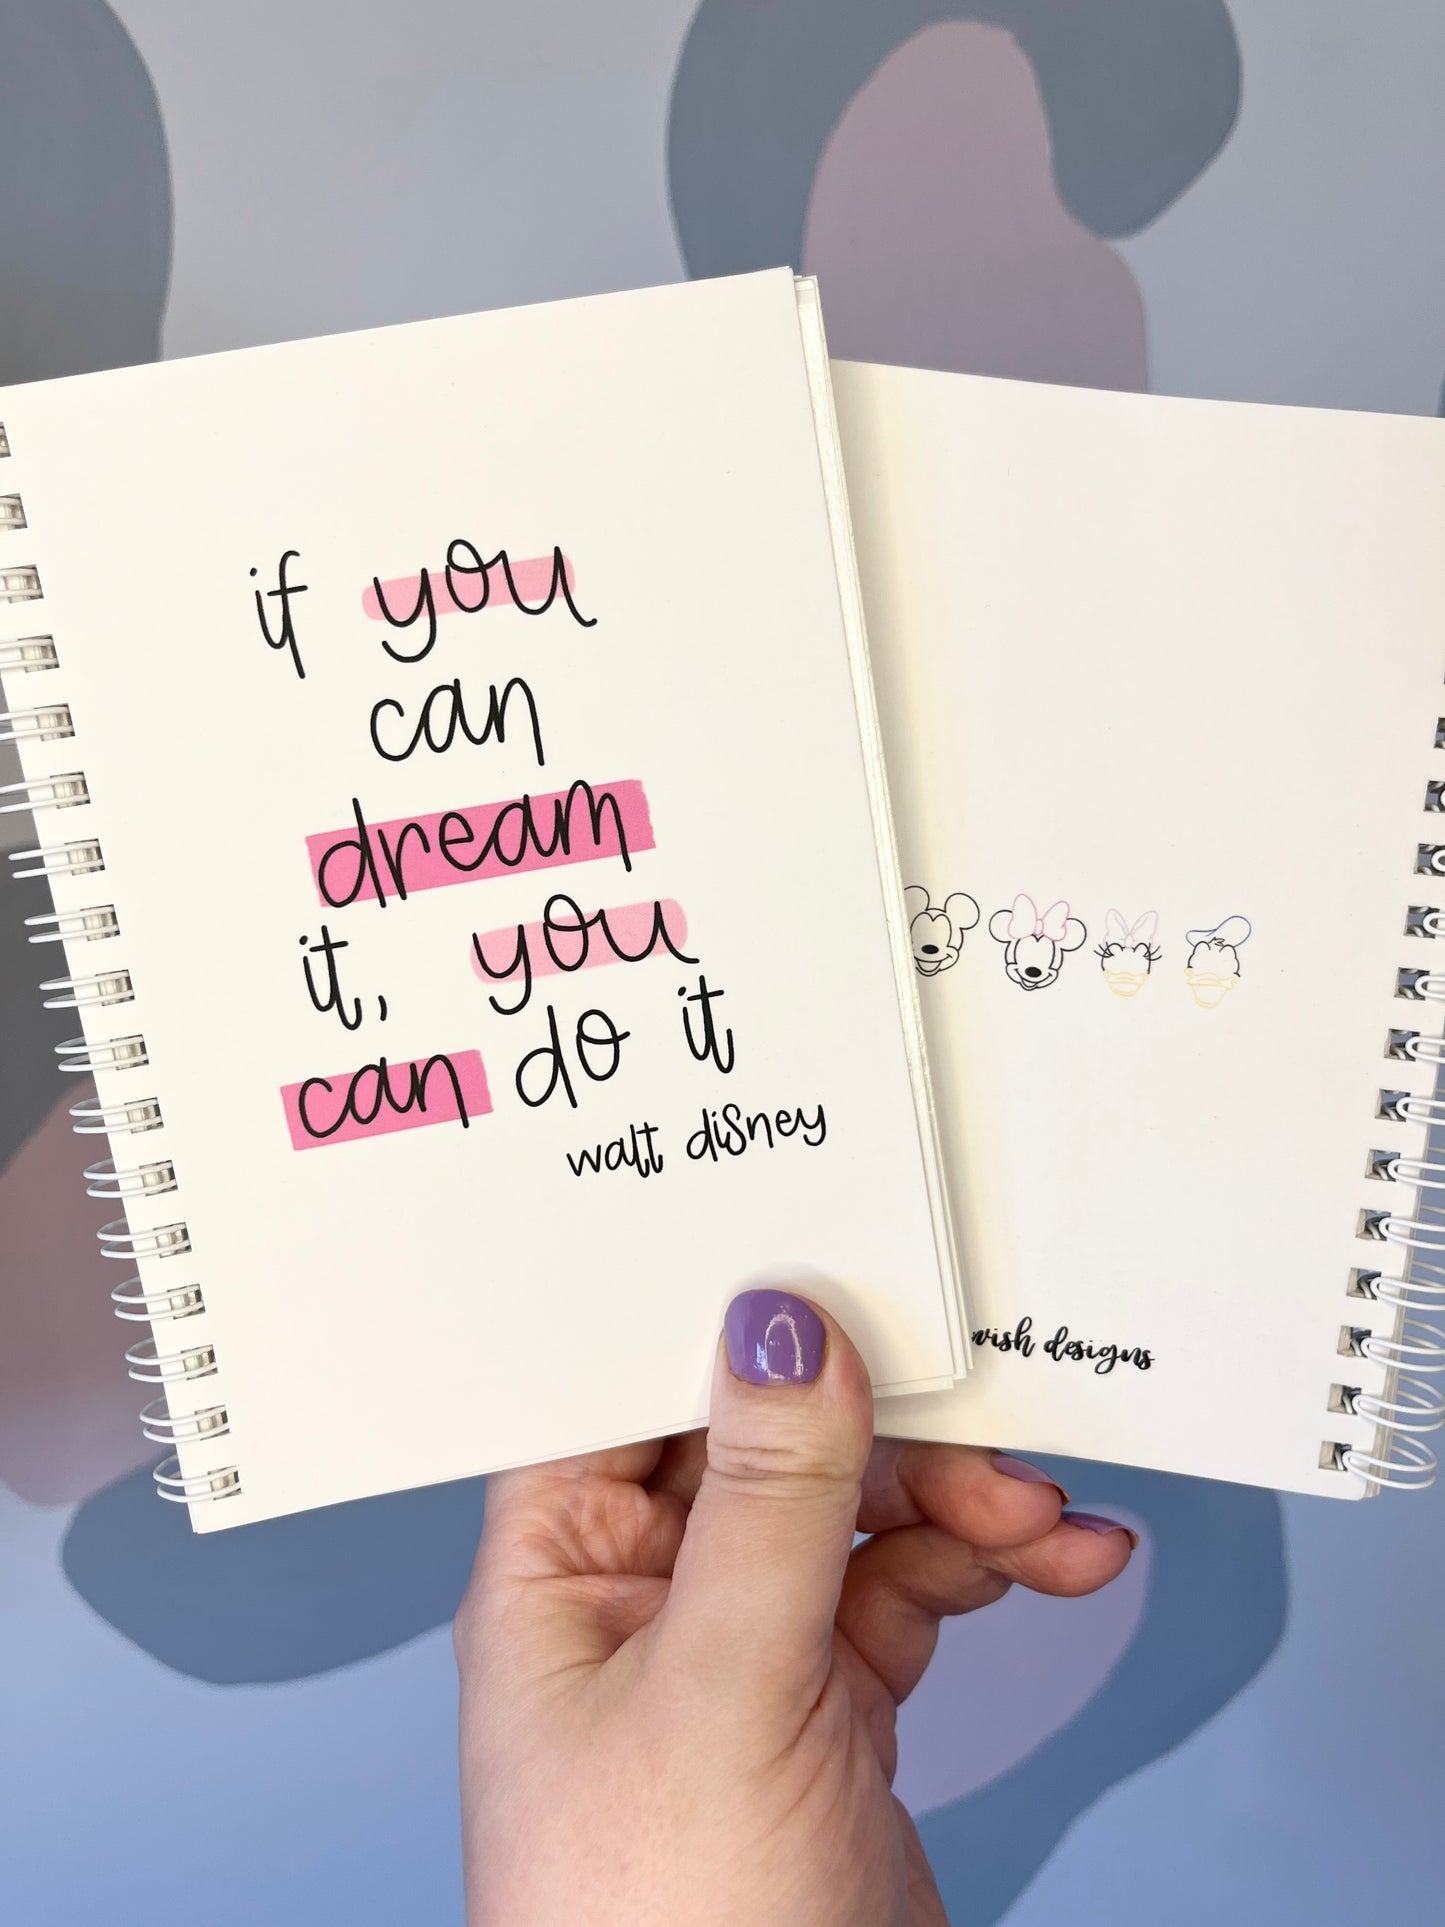 if you
can
dream
it, you
can do it
walt disney
wish designs